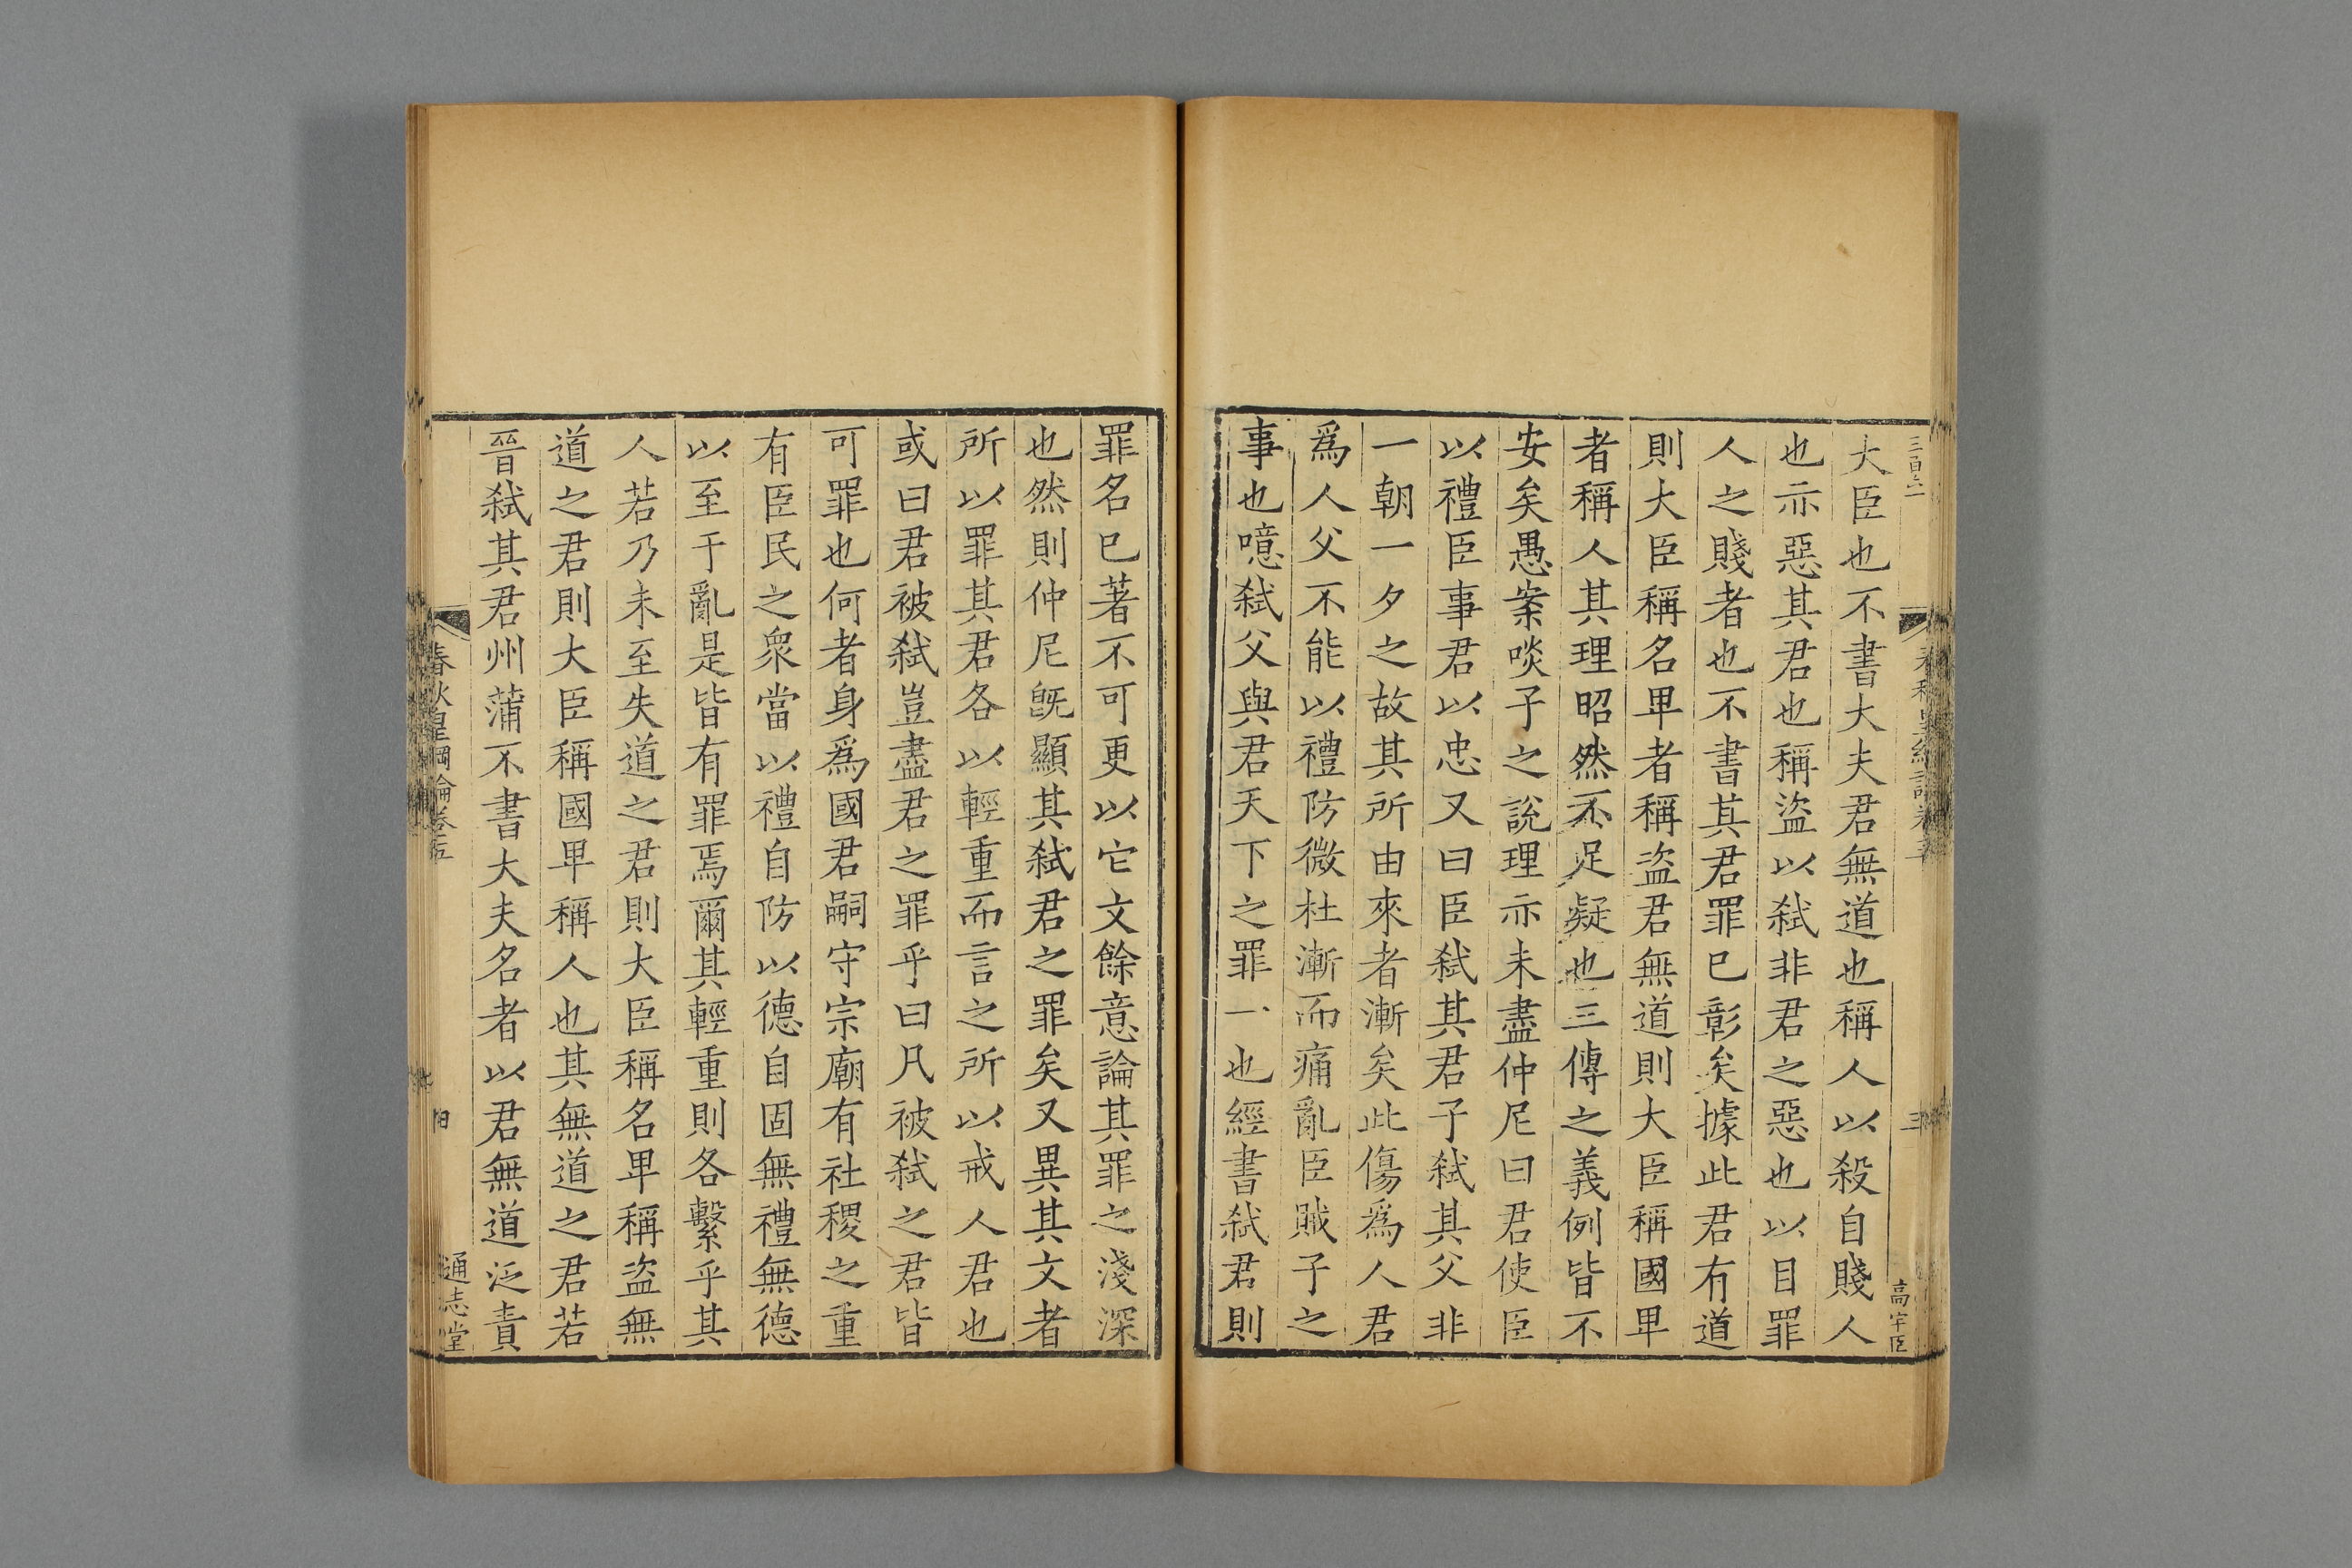 大臣也不書大夫君無道也稱人以殺自賤人
也亦惡其君也稱盜以弒非君之惡也以目罪
人之賤者也不書其君罪已彰矣據此君有道
則大臣稱名卑者稱盜君無道則大臣稱國卑
者稱人其理昭然不足疑也三傳之義例皆不
安矣愚案啖子之說理亦未盡仲尼曰君使臣
以禮臣事君以忠又曰臣弒其君子弒其父非
一朝一夕之故其所由來者漸矣此傷爲人君
爲人父不能以禮防微杜漸而痛亂臣賊子之
事也噫弒父與君天下之罪一也經書弒君則
罪名已著不可更以它文餘意論其罪之淺深
也然則仲尼旣顯其弒君之罪矣又異其文者
所以罪其君各以輕重而言之所以戒人君也
或曰君被弒豈盡君之罪乎曰凡被弒之君皆
可罪也何者身爲國君嗣守宗廟有社稷之重
有臣民之衆當以禮自防以德自固無禮無德
以至于亂是皆有罪焉爾其輕重則各繫乎其
人若乃未至失道之君則大臣稱名卑稱盜無
道之君則大臣稱國卑稱人也其無道之君若
晉弒其君州蒲不書大夫名者以君無道泛責
春秋皇綱論卷五
通志堂
三
高宇臣